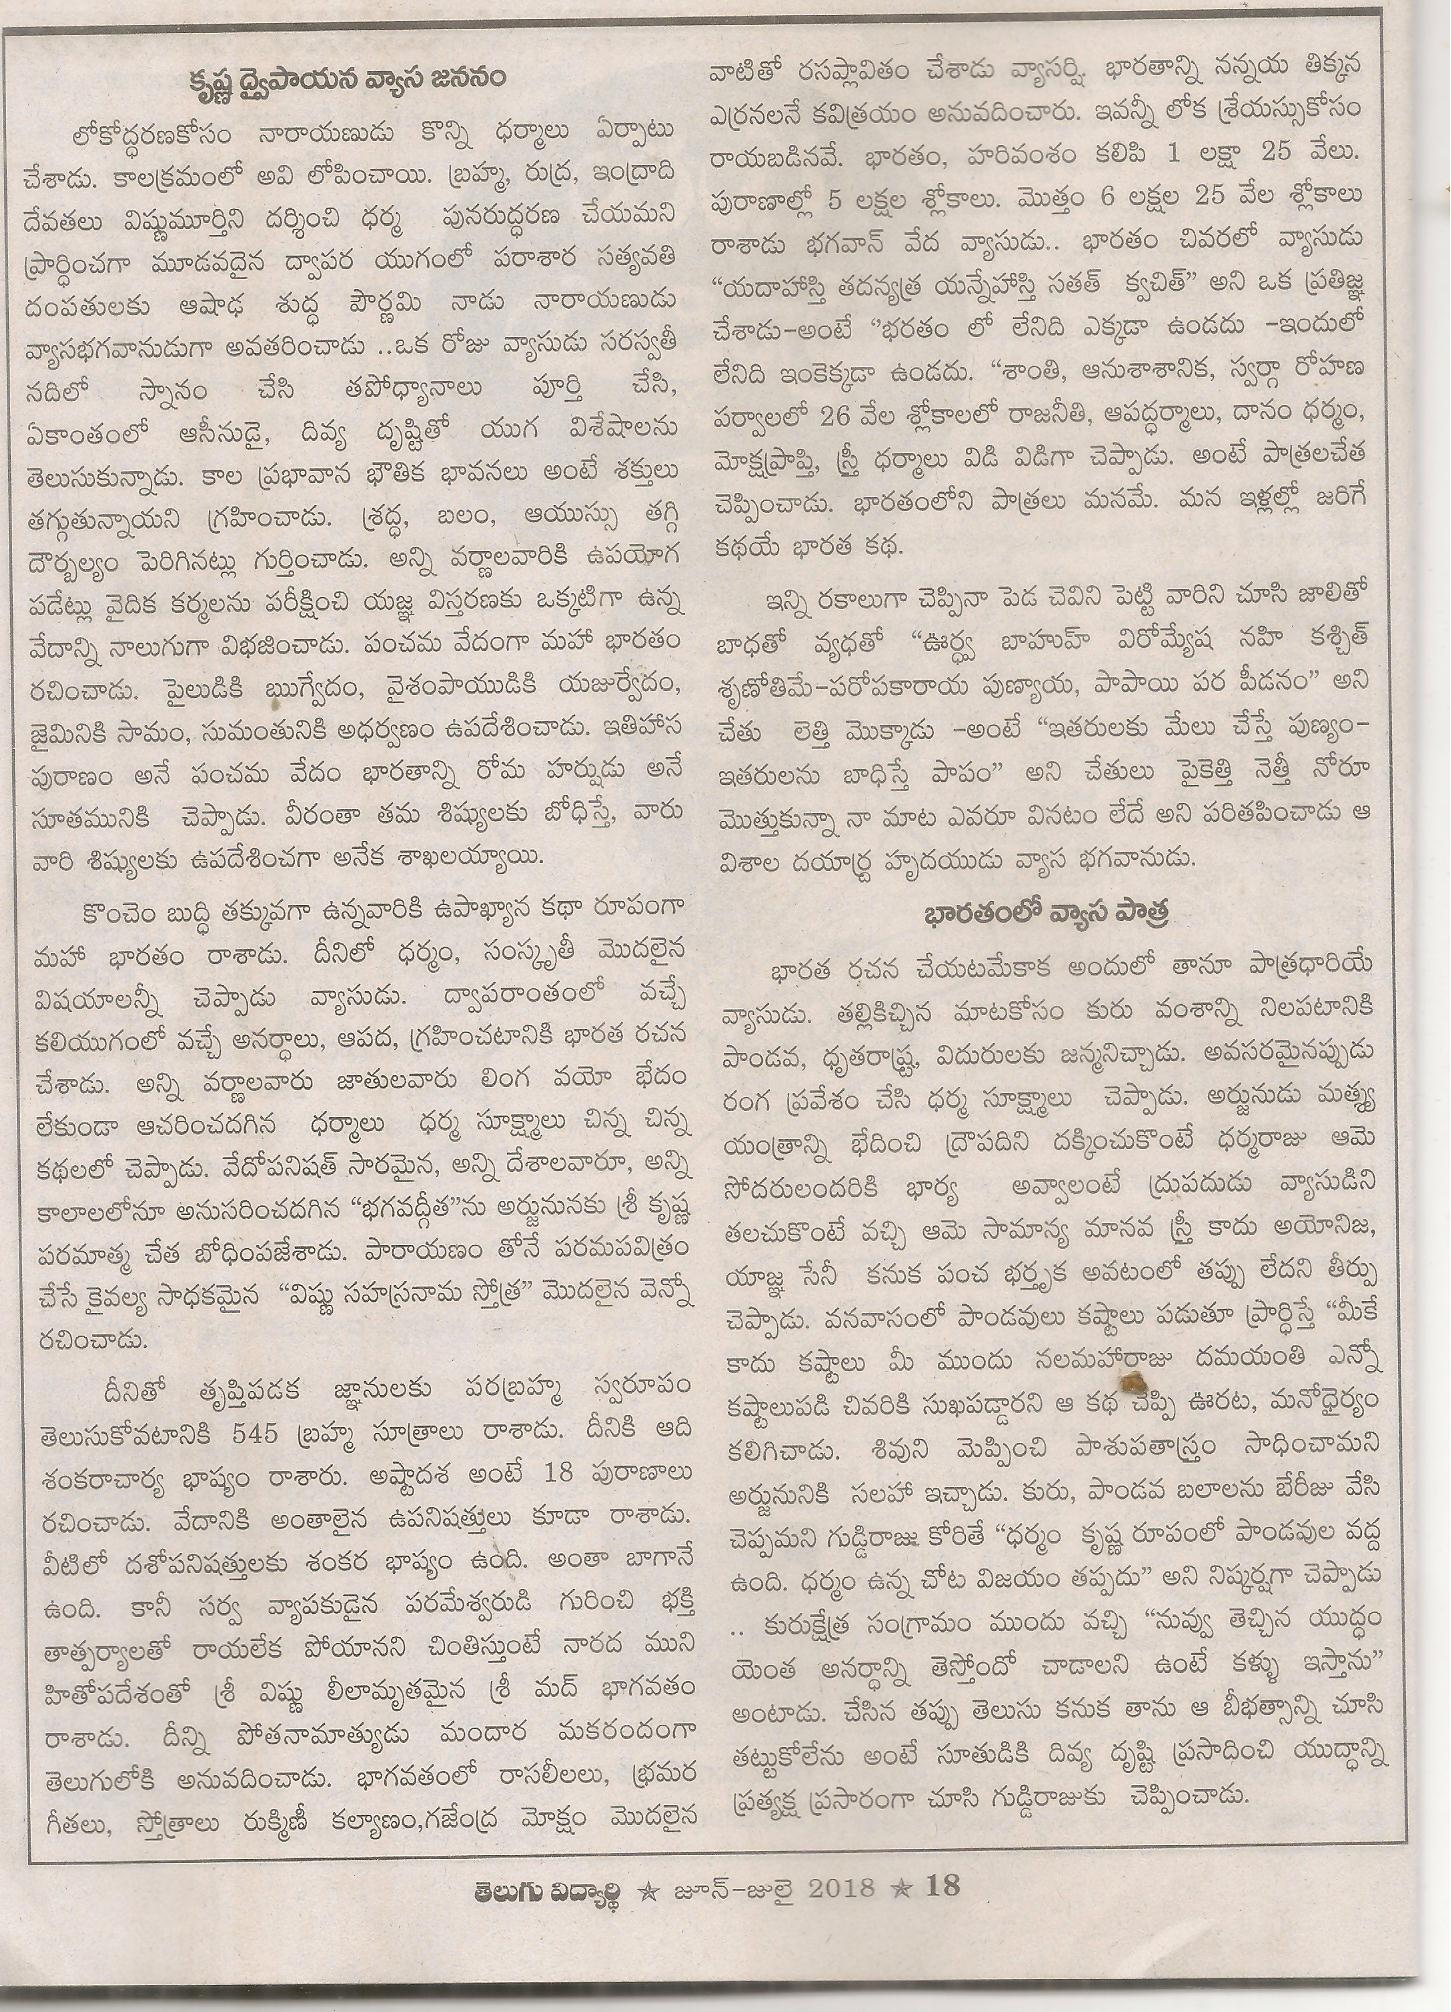 కృష్ణ ద్వైపాయన వ్యాస జననం
లోకోద్ధరణకోసం నారాయణుడు కొన్ని ధర్మాలు ఏర్పాటు
చేశాడు. కాలక్రమంలో అవి లోపించాయి. బ్రహ్మ, రుద్ర, ఇంద్రాది
దేవతలు విష్ణుమూర్తిని దర్శించి ధర్మ పునరుద్ధరణ చేయమని
ప్రార్ధించగా మూడవదైన ద్వాపర యుగంలో పరాశార సత్యవతి
దంపతులకు ఆషాఢ శుద్ధ పౌర్ణమి నాడు నారాయణుడు
వ్యాసభగవానుడుగా అవతరించాడు ..ఒక రోజు వ్యాసుడు సరస్వతీ
నదిలో స్నానం చేసి తపోధ్యానాలు పూర్తి చేసి,
ఏకాంతంలో ఆసీనుడై, దివ్య దృష్టితో యుగ విశేషాలను
తెలుసుకున్నాడు. కాల ప్రభావాన భౌతిక భావనలు అంటే శక్తులు
తగ్గుతున్నాయని గ్రహించాడు. శ్రద్ధ, బలం, ఆయుస్సు తగ్గి
దౌర్బల్యం పెరిగినట్లు గుర్తించాడు. అన్ని వర్ణాలవారికి ఉపయోగ
పడేట్లు వైదిక కర్మలను పరీక్షించి యజ్ఞ విస్తరణకు ఒక్కటిగా ఉన్న
వేదాన్ని నాలుగుగా విభజించాడు. పంచమ వేదంగా మహా భారతం
రచించాడు. పైలుడికి ఋగ్వేదం, వైశంపాయుడికి యజుర్వేదం,
జైమినికి సామం, సుమంతునికి అధర్వణం ఉపదేశించాడు. ఇతిహాస
పురాణం అనే పంచమ వేదం భారతాన్ని రోమ హర్షుడు అనే
సూతమునికి చెప్పాడు. వీరంతా తమ శిష్యులకు బోధిస్తే, వారు
వారి శిష్యులకు ఉపదేశించగా అనేక శాఖలయ్యాయి.
కొంచెం బుద్ధి తక్కువగా ఉన్నవారికి ఉపాఖ్యాన కథా రూపంగా
మహా భారతం రాశాడు. దీనిలో ధర్మం, సంస్కృతీ మొదలైన
విషయాలన్నీ చెప్పాడు వ్యాసుడు. ద్వాపరాంతంలో వచ్చే
కలియుగంలో వచ్చే అనర్ధాలు, ఆపద, గ్రహించటానికి భారత రచన
చేశాడు. అన్ని వర్ణాలవారు జాతులవారు లింగ వయో భేదం
లేకుండా ఆచరించదగిన ధర్మాలు ధర్మ సూక్ష్మాలు చిన్న చిన్న
కథలలో చెప్పాడు. వేదోపనిషత్ సారమైన, అన్ని దేశాలవారూ, అన్ని
కాలాలలోనూ అనుసరించదగిన “భగవద్గీత”ను అర్జునునకు శ్రీ కృష్ణ
పరమాత్మ చేత బోధింపజేశాడు. పారాయణం తోనే పరమపవిత్రం
చేసే కైవల్య సాధకమైన “విష్ణు సహస్రనామ స్తోత్ర” మొదలైన వెన్నో
రచించాడు.
దీనితో తృప్తిపడక జ్ఞానులకు పరబ్రహ్మ స్వరూపం
తెలుసుకోవటానికి 545 బ్రహ్మ సూత్రాలు రాశాడు. దీనికి ఆది
శంకరాచార్య భాష్యం రాశారు. అష్టాదశ అంటే 18 పురాణాలు
రచించాడు. వేదానికి అంతాలైన ఉపనిషత్తులు కూడా రాశాడు.
వీటిలో దశోపనిషత్తులకు శంకర భాష్యం ఉంది. అంతా బాగానే
ఉంది. కానీ సర్వ వ్యాపకుడైన పరమేశ్వరుడి గురించి భక్తి
తాత్పర్యాలతో రాయలేక పోయానని చింతిస్తుంటే నారద ముని
హితోపదేశంతో శ్రీ విష్ణు లీలామృతమైన శ్రీ మద్ భాగవతం
రాశాడు. దీన్ని పోతనామాత్యుడు మందార మకరందంగా
తెలుగులోకి అనువదించాడు. భాగవతంలో రాసలీలలు, భ్రమర
గీతలు, స్తోత్రాలు రుక్మిణీ కల్యాణం,గజేంద్ర మోక్షం మొదలైన
వాటితో రసప్లావితం చేశాడు వ్యాసర్షి. భారతాన్ని నన్నయ తిక్కన
ఎర్రనలనే కవిత్రయం అనువదించారు. ఇవన్నీ లోక శ్రేయస్సుకోసం
రాయబడినవే. భారతం, హరివంశం కలిపి 1 లక్షా 25 వేలు.
పురాణాల్లో 5 లక్షల శ్లోకాలు. మొత్తం 6 లక్షల 25 వేల శ్లోకాలు
రాశాడు భగవాన్ వేద వ్యాసుడు.. భారతం చివరలో వ్యాసుడు
“యదాహాస్తి తదన్యత్ర యన్నేహాస్తి సతత్ క్వచిత్” అని ఒక ప్రతిజ్ఞ
చేశాడు-అంటే ‘’భరతం లో లేనిది ఎక్కడా ఉండదు -ఇందులో
లేనిది ఇంకెక్కడా ఉండదు. “శాంతి, ఆనుశాశానిక, స్వర్గా రోహణ
పర్వాలలో 26 వేల శ్లోకాలలో రాజనీతి, ఆపద్ధర్మాలు, దానం ధర్మం,
మోక్షప్రాప్తి, స్త్రీ ధర్మాలు విడి విడిగా చెప్పాడు. అంటే పాత్రలచేత
చెప్పించాడు. భారతంలోని పాత్రలు మనమే. మన ఇళ్లల్లో జరిగే
కథయే భారత కథ.
ఇన్ని రకాలుగా చెప్పినా పెడ చెవిని పెట్టి వారిని చూసి జాలితో
బాధతో వ్యధతో “ఊర్ధ్వ బాహుహ్ విరోమ్యేష నహి కశ్చిత్
శృణోతిమే-పరోపకారాయ పుణ్యాయ, పాపాయి పర పీడనం” అని
చేతు లెత్తి మొక్కాడు -అంటే “ఇతరులకు మేలు చేస్తే పుణ్యం-
ఇతరులను బాధిస్తే పాపం” అని చేతులు పైకెత్తి నెత్తీ నోరూ
మొత్తుకున్నా నా మాట ఎవరూ వినటం లేదే అని పరితపించాడు ఆ
విశాల దయార్ద్ర హృదయుడు వ్యాస భగవానుడు.
భారతంలో వ్యాస పాత్ర
భారత రచన చేయటమేకాక అందులో తానూ పాత్రధారియే
వ్యాసుడు. తల్లికిచ్చిన మాటకోసం కురు వంశాన్ని నిలపటానికి
పాండవ, ధృతరాష్ట్ర, విదురులకు జన్మనిచ్చాడు. అవసరమైనప్పుడు
రంగ ప్రవేశం చేసి ధర్మ సూక్ష్మాలు చెప్పాడు. అర్జునుడు మత్శ్య
యంత్రాన్ని భేదించి ద్రౌపదిని దక్కించుకొంటే ధర్మరాజు ఆమె
సోదరులందరికి భార్య అవ్వాలంటే ద్రుపదుడు వ్యాసుడిని
తలచుకొంటే వచ్చి ఆమె సామాన్య మానవ స్త్రీ కాదు అయోనిజ,
యాజ్ఞ సేనీ కనుక పంచ భర్తృక అవటంలో తప్పు లేదని తీర్పు
చెప్పాడు. వనవాసంలో పాండవులు కష్టాలు పడుతూ ప్రార్ధిస్తే “మీకే
కాదు కష్టాలు మీ ముందు నలమహారాజు దమయంతి ఎన్నో
కష్టాలుపడి చివరికి సుఖపడ్డారని ఆ కథ చెప్పి ఊరట, మనోధైర్యం
కలిగిచాడు. శివుని మెప్పించి పాశుపతాస్త్రం సాధించామని
అర్జునునికి సలహా ఇచ్చాడు. కురు, పాండవ బలాలను బేరీజు వేసి
చెప్పమని గుడ్డిరాజు కోరితే “ధర్మం కృష్ణ రూపంలో పాండవుల వద్ద
ఉంది. ధర్మం ఉన్న చోట విజయం తప్పదు” అని నిష్కర్షగా చెప్పాడు
.. కురుక్షేత్ర సంగ్రామం ముందు వచ్చి “నువ్వు తెచ్చిన యుద్ధం
యెంత అనర్ధాన్ని తెస్తోందో చూడాలని ఉంటే కళ్ళు ఇస్తాను”
అంటాడు. చేసిన తప్పు తెలుసు కనుక తాను ఆ బీభత్సాన్ని చూసి
తట్టుకోలేను అంటే సూతుడికి దివ్య దృష్టి ప్రసాదించి యుద్ధాన్ని
ప్రత్యక్ష ప్రసారంగా చూసి గుడ్డిరాజుకు చెప్పించాడు.
తెలుగు విద్యార్థి ★ జూన్-జులై 2018 ★ 18